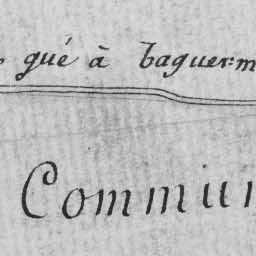 gué à baguer:m
Commun